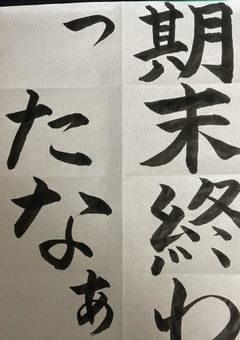 期末終わ
ったなぁ